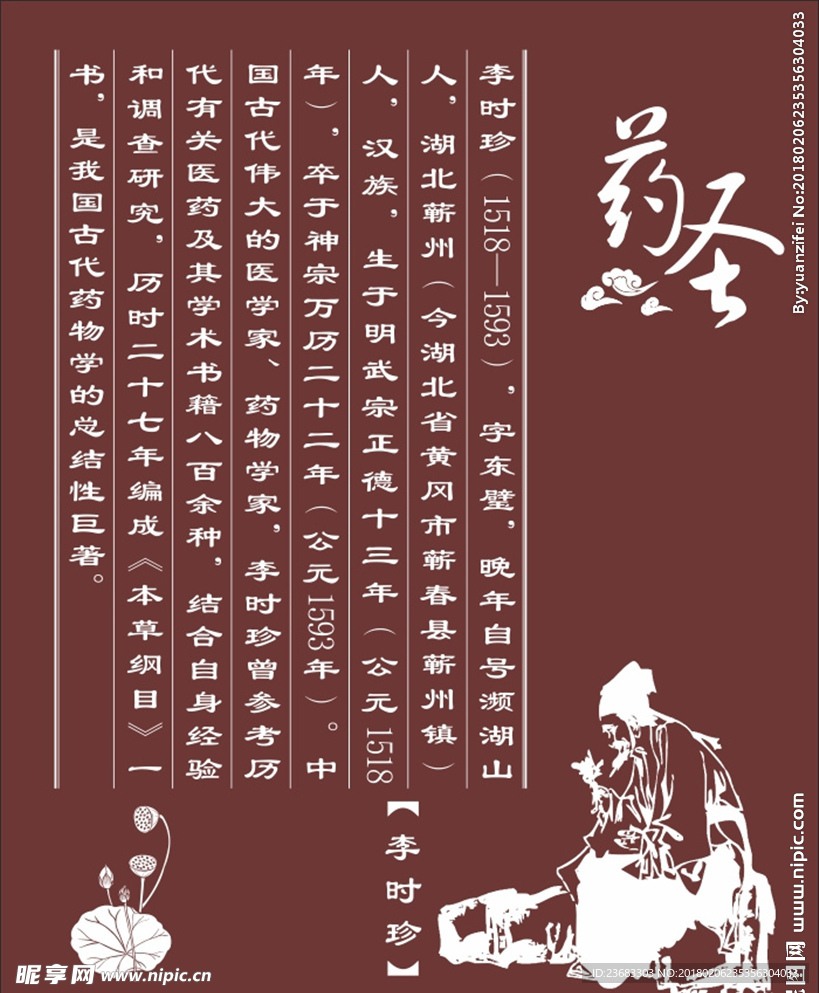 药圣
李时珍（1518—1593），字东璧，晚年自号濒湖山
人，湖北蕲州（今湖北省黄冈市蕲春县蕲州镇）
人，汉族，生于明武宗正德十三年（公元1518
年），卒于神宗万历二十二年（公元1593年）。中
国古代伟大的医学家、药物学家，李时珍曾参考历
代有关医药及其学术书籍八百余种，结合自身经验
和调查研究，历时二十七年编成《本草纲目》一
书，是我国古代药物学的总结性巨著。
【李时珍】
昵享网 www.nipic.cn
By:yuanzifei No:20180206235356304033
www.nipic.com
ID:23683303 NO:20180206235356304033